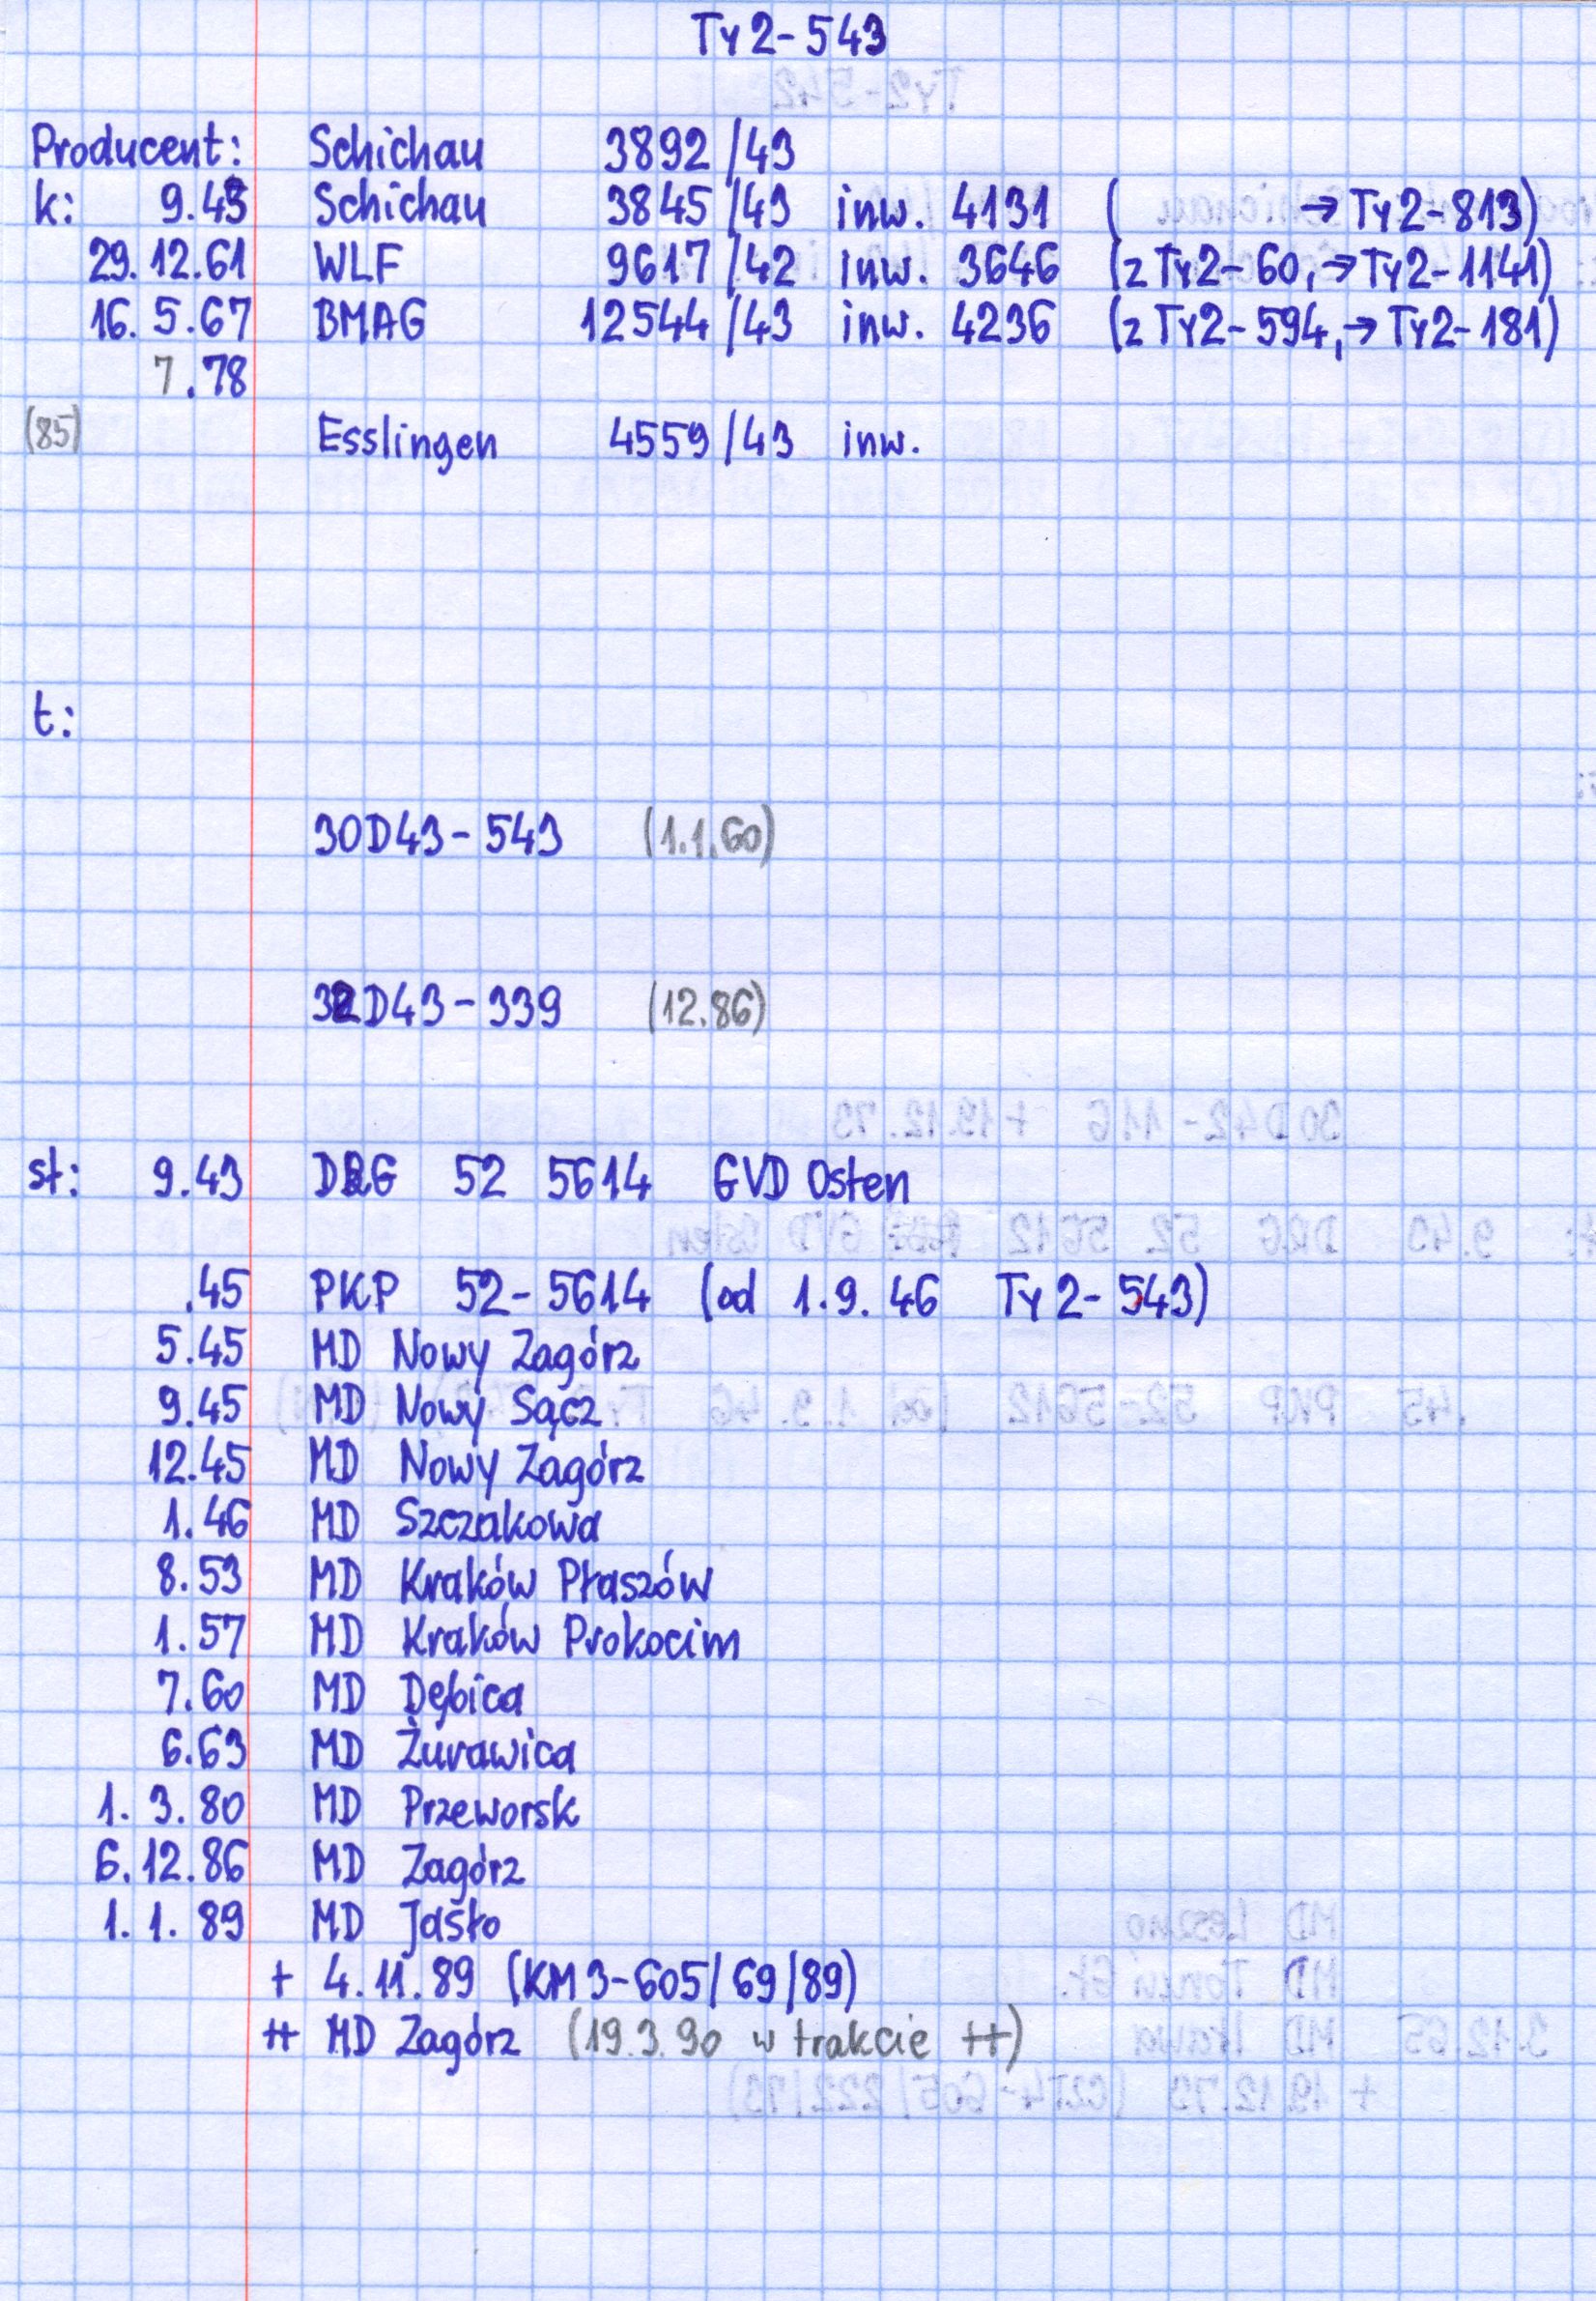 Ty2-543
Producent: Schichau 3892/43
k: 9.43 Schichau 3845/43 inw. 4131 ( → Ty2-813)
29.12.61 WLF 9617/42 inw. 3646 (z Ty2-60, → Ty2-1141)
16. 5.67 BMAG 12544/43 inw. 4236 (z Ty2-594, → Ty2-181)
7.78
(85) Esslingen 4559/43 inw.
t:
30D43-543 (1.1.60)
32D43-339 (12.86)
st: 9.43 DRG 52 5614 GVD Osten
.45 PKP 52-5614 (od 1.9.46 Ty2-543)
5.45 MD Nowy Zagórz
9.45 MD Nowy Sącz
12.45 MD Nowy Zagórz
1.46 MD Szczakowa
8.53 MD Kraków Płaszów
1.57 MD Kraków Prokocim
7.60 MD Dębica
6.63 MD Żurawica
1. 3.80 MD Przeworsk
6.12.86 MD Zagórz
1. 1. 89 MD Jasło
+ 4.11.89 (KM3-605/69/89)
++ MD Zagórz (19.3.90 w trakcie ++)